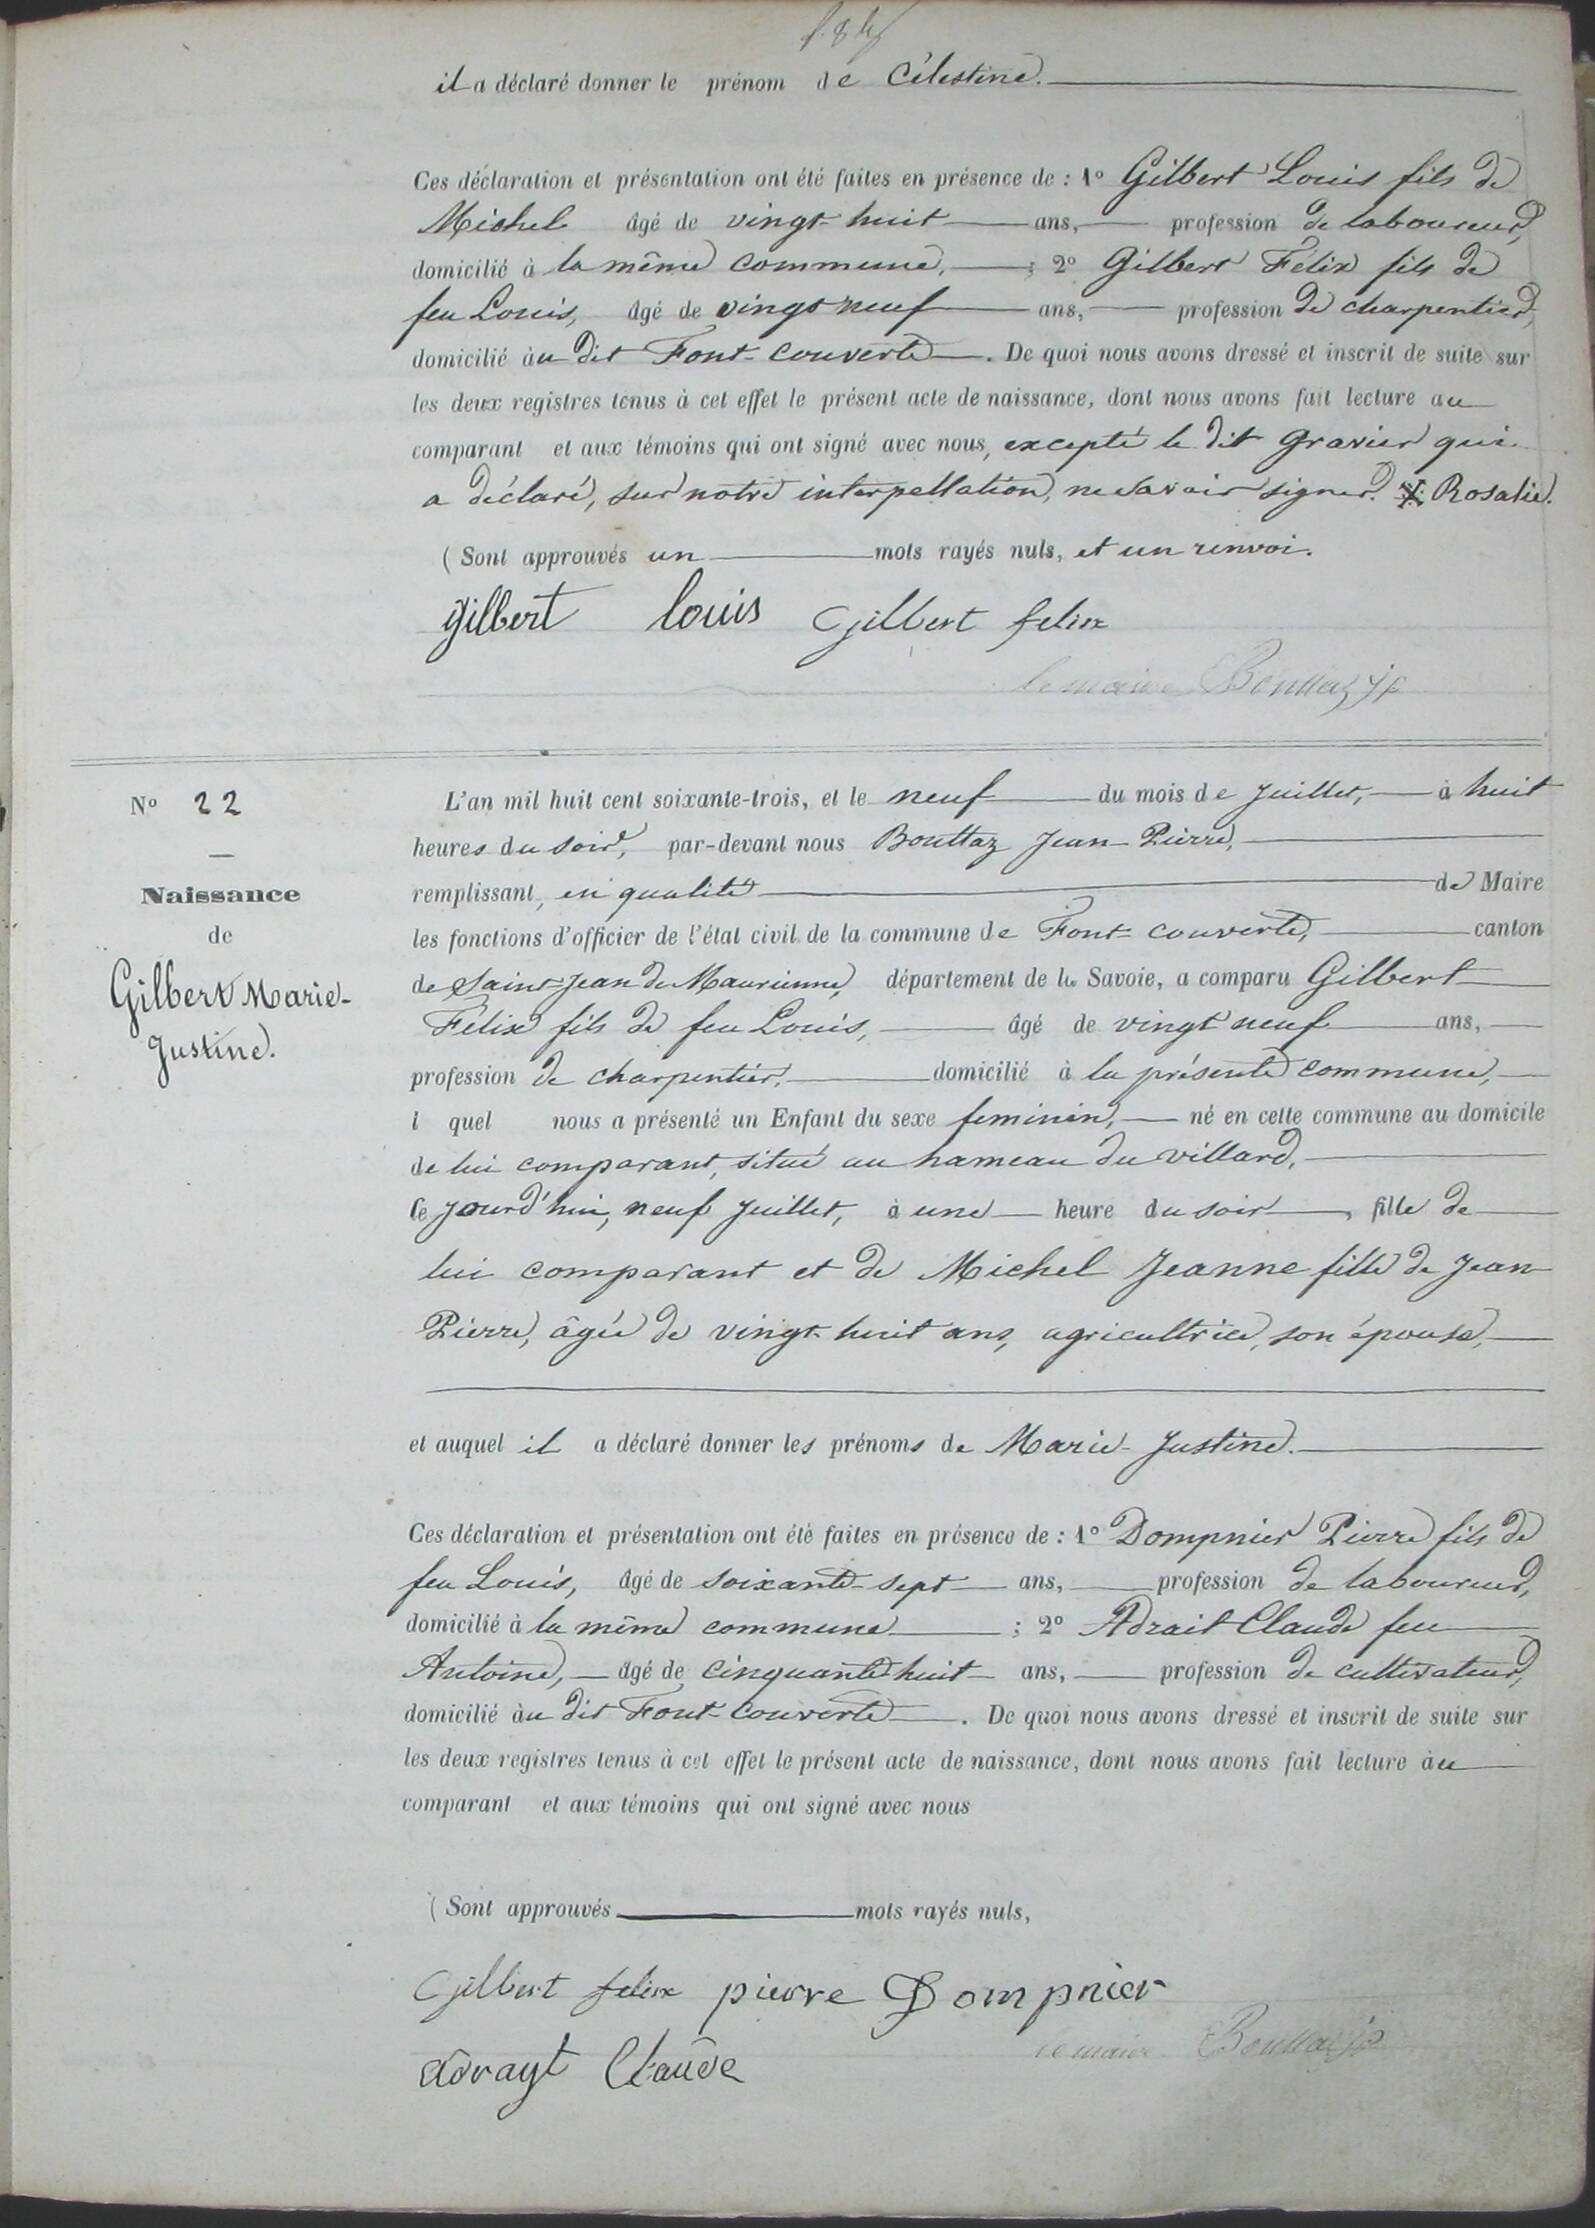 il a déclaré donner le prénom de Célestine.
Ces déclaration et présentation ont été faites en présence de : 1º Gilbert Louis fils de
Michel âgé de vingt-huit ans, profession de laboureur,
domicilié à la même commune, ; 2º Gilbert Félix fils de
feu Louis, âgé de vingt neuf ans, profession de charpentier,
domicilié au dit Font-couverte. De quoi nous avons dressé et inscrit de suite sur
les deux registres tenus à cet effet le présent acte de naissance, dont nous avons fait lecture au
comparant et aux témoins qui ont signé avec nous, excepté le dit Gravier qui
a déclaré, sur notre interpellation, ne savoir signer. Rosalie.
(Sont approuvés un mots rayés nuls, et un renvoi.
Gilbert Louis Gilbert felix
le maire Bouttaz jp
Nº 22
Naissance
de
Gilbert Marie-
Justine.
L'an mil huit cent soixante-trois, et le neuf du mois de juillet, à huit
heures du soir, par-devant nous Bouttaz Jean-Pierre,
remplissant, en qualité de Maire
les fonctions d'officier de l'état civil de la commune de Font-couverte, canton
de Saint-Jean de Maurienne, département de la Savoie, a comparu Gilbert
Félix fils de feu Louis, âgé de vingt neuf ans,
profession de charpentier, domicilié à la présente commune,
l quel nous a présenté un Enfant du sexe feminin, né en cette commune au domicile
de lui comparant, situé au hameau du villard,
ce jourd'hui, neuf juillet, à une heure du soir, fille de
lui comparant et de Michel Jeanne fille de Jean
Pierre, âgée de vingt-huit ans, agricultrice, son épouse,
et auquel il a déclaré donner les prénoms de Marie-Justine.
Ces déclaration et présentation ont été faites en présence de : 1º Dompnier Pierre fils de
feu Louis, âgé de soixante-sept ans, profession de laboureur,
domicilié à la même commune ; 2º Adrait Claude feu
Antoine, âgé de cinquante huit ans, profession de cultivateur,
domicilié au dit Font-couverte. De quoi nous avons dressé et inscrit de suite sur
les deux registres tenus à cet effet le présent acte de naissance, dont nous avons fait lecture au
comparant et aux témoins qui ont signé avec nous
(Sont approuvés mots rayés nuls,
Gilbert felix pierre Dompnier
le maire Bouttaz jp
adrayt Claude